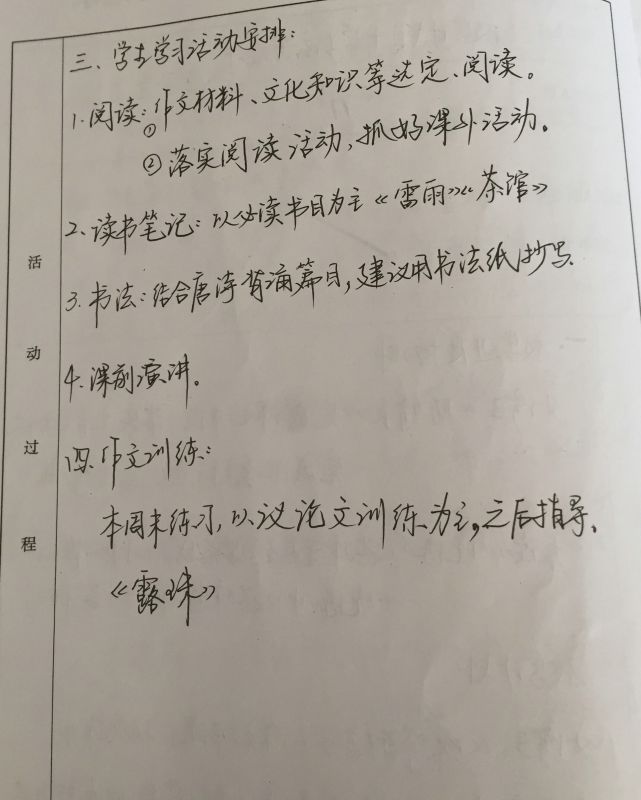 三、学生学习活动安排：
1.阅读：①作文材料、文化知识等选定、阅读。
②落实阅读活动，抓好课外活动。
2、读书笔记：以必读书目为主《雷雨》《茶馆》
3.书法：结合唐诗背诵篇目，建议用书法纸抄写.
4.课前演讲。
四、作文训练：
本周末练习，以议论文训练为主，之后指导、
《露珠》
活动过程